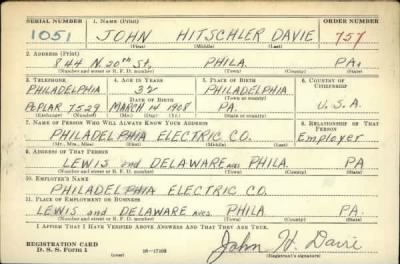 SERIAL NUMBER 1. NAME (Print) ORDER NUMBER
1051 JOHN HITSCHLER DAVIE 757
(First) (Middle) (Last)
2. ADDRESS (Print)
844 N. 20th St, PHILA. PA.
(Number and street or R. F. D. number) (Town) (County) (State)
3. TELEPHONE 4. AGE IN YEARS 5. PLACE OF BIRTH 6. COUNTRY OF CITIZENSHIP
PHILADELPHIA 32 PHILADELPHIA
DATE OF BIRTH (Town or county)
POPLAR 7529 MARCH 14 1908 PA. U.S.A.
(Exchange) (Number) (Mo.) (Day) (Yr.) (State or country)
7. NAME OF PERSON WHO WILL ALWAYS KNOW YOUR ADDRESS 8. RELATIONSHIP OF THAT PERSON
PHILADELPHIA ELECTRIC CO. Employer
(Mr., Mrs., Miss) (First) (Middle) (Last)
9. ADDRESS OF THAT PERSON
LEWIS and DELAWARE AVES. PHILA. PA
(Number and street or R. F. D. number) (Town) (County) (State)
10. EMPLOYER'S NAME
PHILADELPHIA ELECTRIC CO.
11. PLACE OF EMPLOYMENT OR BUSINESS
LEWIS and DELAWARE AVES. PHILA PA.
(Number and street or R. F. D. number) (Town) (County) (State)
I AFFIRM THAT I HAVE VERIFIED ABOVE ANSWERS AND THAT THEY ARE TRUE.
REGISTRATION CARD
D. S. S. Form 1 (over) 16-17105 John H. Davie
(Registrant's signature)